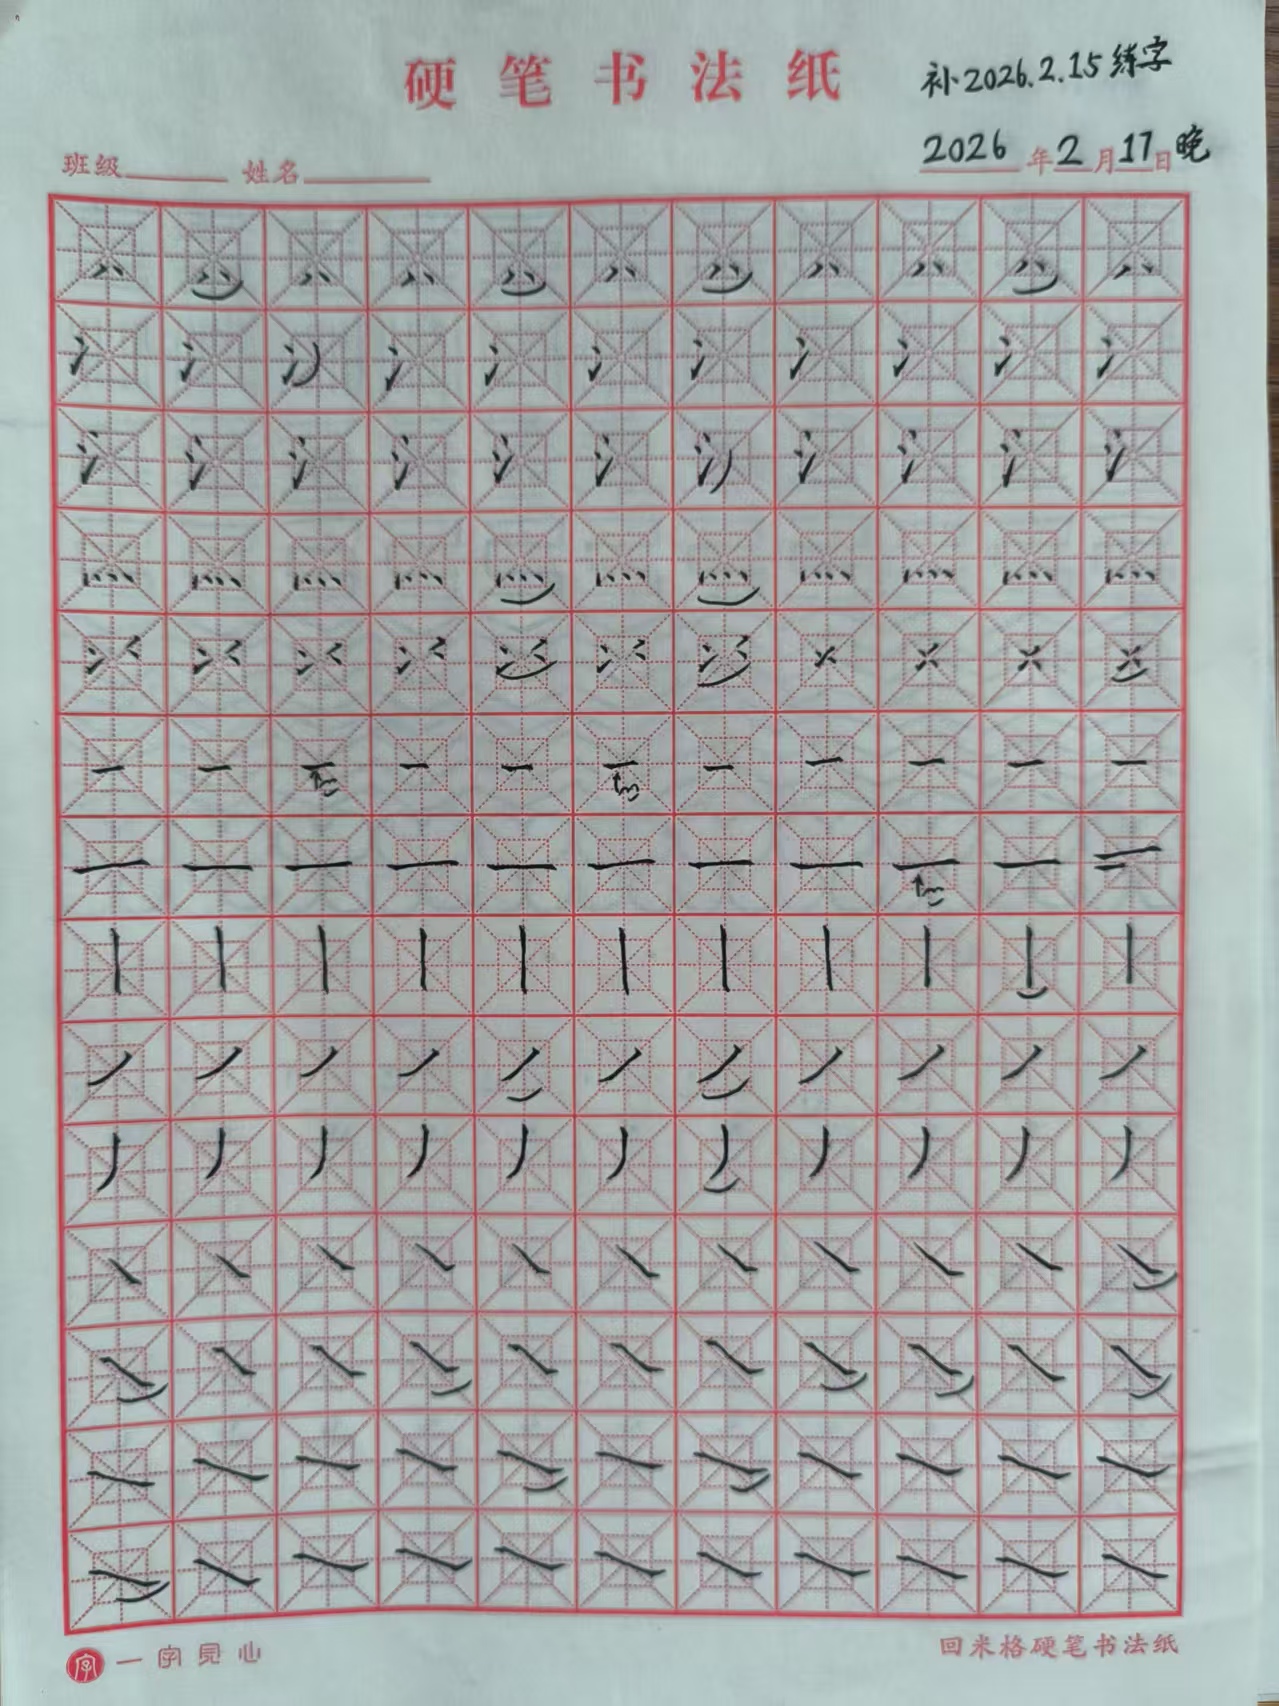 硬笔书法纸
补2026.2.15练字
班级 姓名 2026年2月17日晚
一字见心
回米格硬笔书法纸